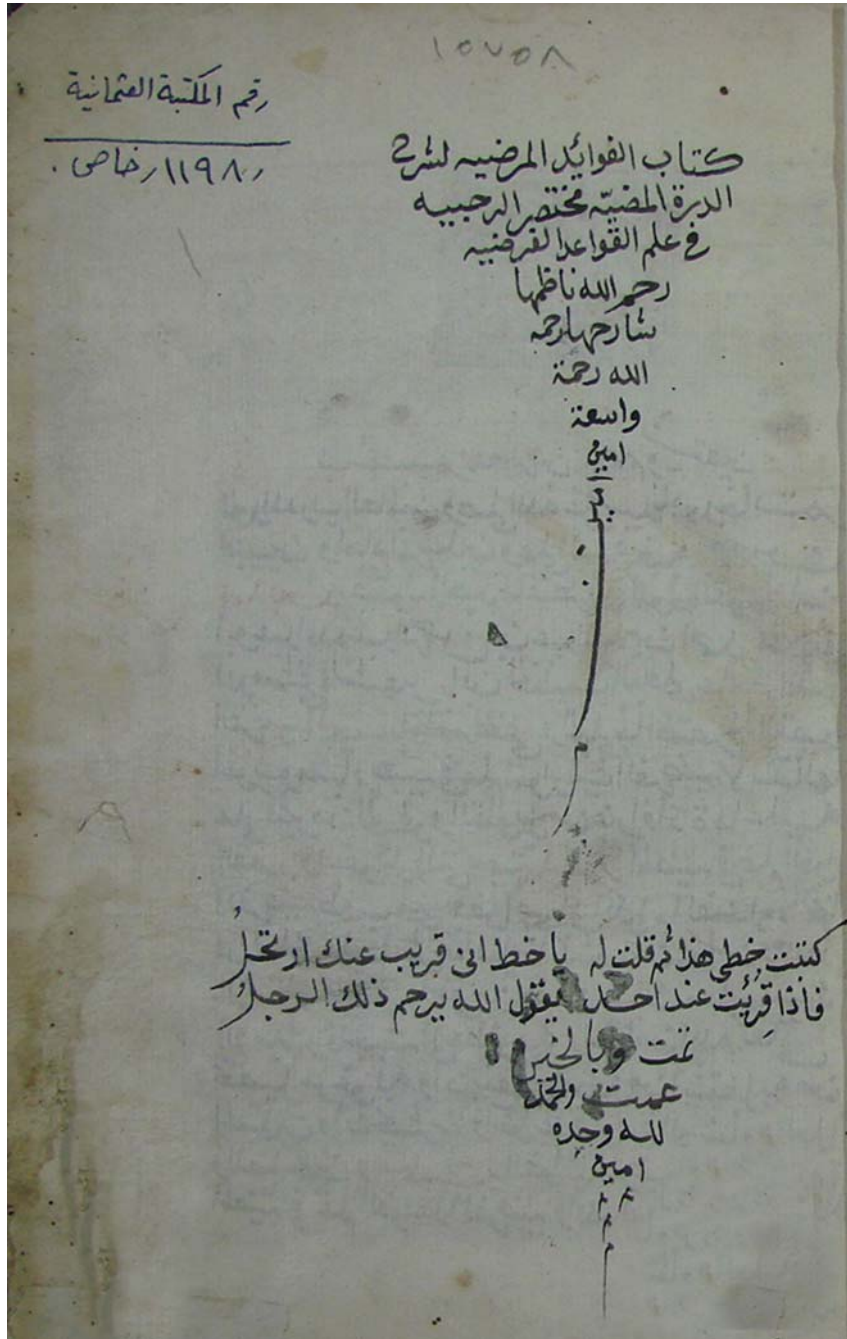 ١٥٧٥٨
رقم المكتبة العثمانية
١١٩٨ / خاص .
كتاب الفوائد المرضيه لشرح
الدرة المضيّه مختصر الرحبيه
في علم القواعد الفرضيه
رحم الله ناظمها
شارحها رحمه
الله رحمة
واسعة
امين
كتبت خطي هذا ثم قلت له يا خط اني قريب عنك ارتحلُ
فاذا قُرِئت عند احد يقول الله يرحم ذلك الرجلُ
تمت وبالخير
عمت والحمد
لله وحده
امين